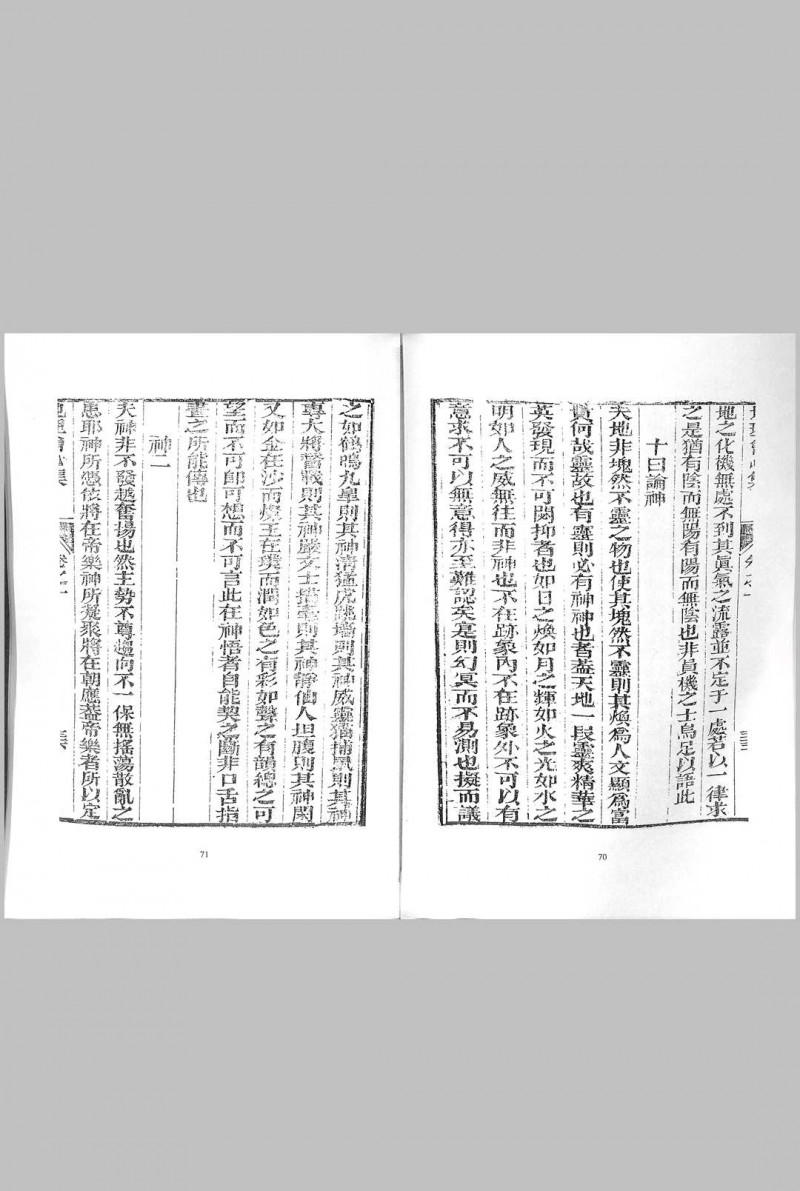 地之化機無處不到其眞氣之流露並不定于一處若以一律求
之是猶有陰而無陽有陽而無陰也非員機之士烏足以語此
十曰論神
天地非塊然不靈之物也使其塊然不靈則其煥爲人文顯爲富
貴何哉靈故也有靈則必有神神也者葢天地一段靈爽精華之
英發現而不可閼抑者也如日之煥如月之輝如火之光如水之
明如人之威無往而非神也不在跡象內不在跡象外不可以有
意求不可以無意得亦至難認矣是則幻冥而不易測也擬而議
70
之如鶴鳴九臯則其神清猛虎跳墻則其神威靈猫捕鼠則其神
專大將督戰則其神嚴文士搭臺則其神靜仙人坦腹則其神閑
又如金在沙而燦玉在璞而潤如色之有彩如聲之有韻總之可
望而不可卽可想而不可言此在神悟者自能契之斷非口舌指
畫之所能傳也
神二
夫神非不發越奮揚也然主勢不尊趨向不一保無搖蕩散亂之
患耶神所憑依將在帝樂神所凝聚將在朝應葢帝樂者所以定
地理會心集
卷之一
71